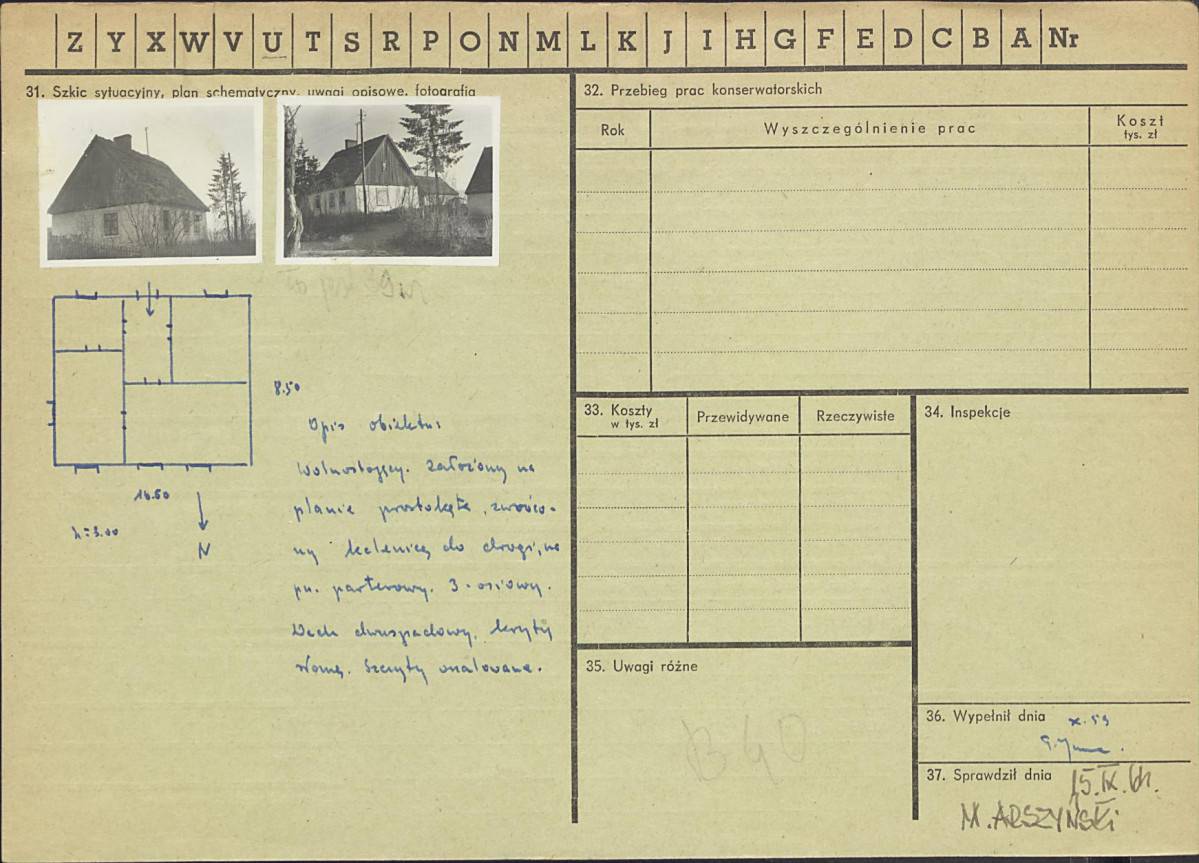 Z Y X W V U T S R P O N M L K J I H G F E D C B A Nr
31. Szkic sytuacyjny, plan schematyczny, uwagi opisowe, fotografia
8.50
14.50
h=3.00
N
Opis obiektu:
Wolnostojący. Założony na
planie prostokąta, zwróco-
ny kalenicą do drogi, na
pn. parterowy. 3-osiowy.
Dach dwuspadowy, kryty
słomą. Szczyty
32. Przebieg prac konserwatorskich
Rok
Wyszczególnienie prac
Koszt
tys. zł
33. Koszty
w tys. zł
Przewidywane
Rzeczywiste
34. Inspekcje
35. Uwagi różne
B 40
36. Wypełnił dnia x.59
37. Sprawdził dnia 15.IX.61.
M. ARSZYŃSKI